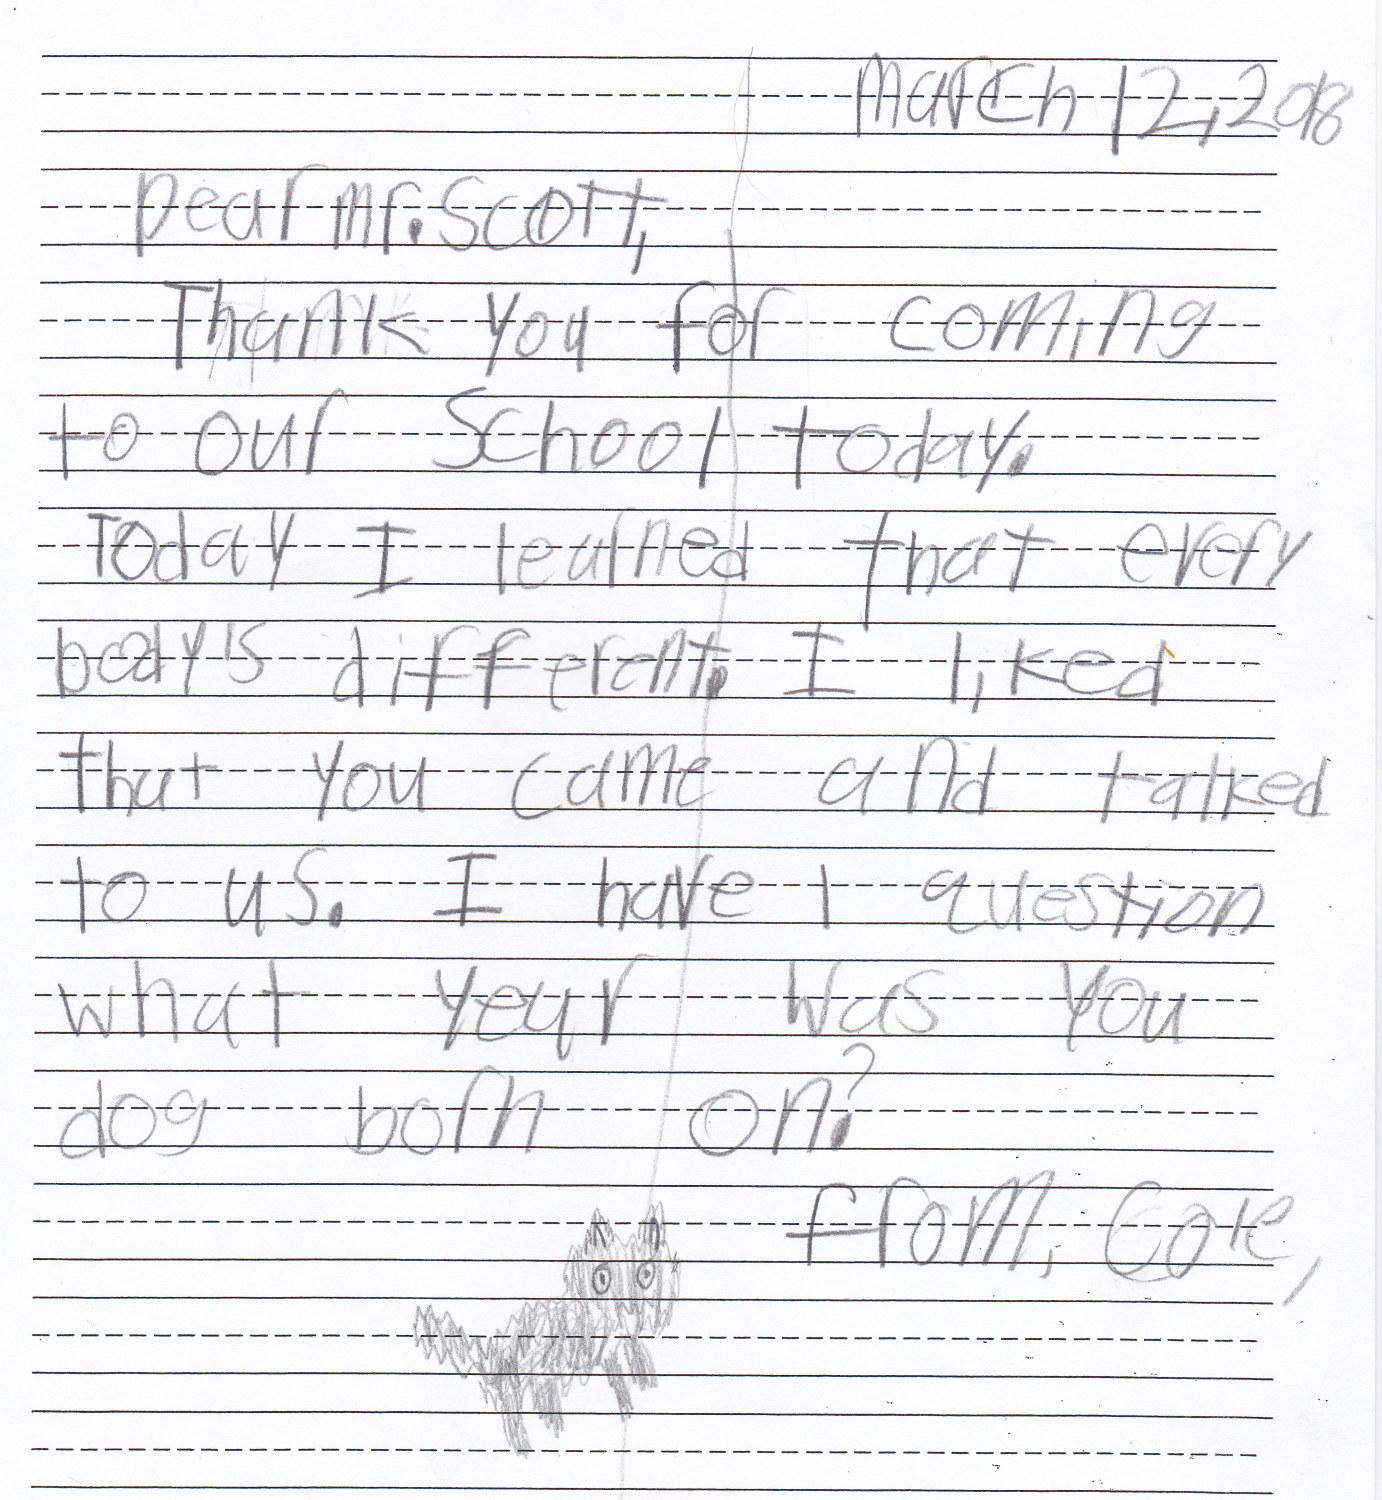 March 12, 2018
Dear Mr. Scott,
Thank you for coming
to our School today.
Today I learned that every
body is different. I liked
that you came and talked
to us. I have 1 question
what year was you
dog born on?
from, Cole,